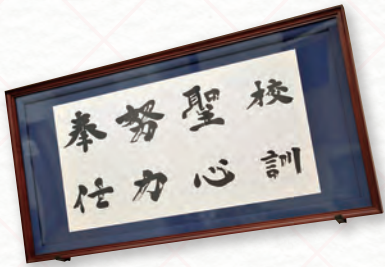 校訓
聖心
努力
奉仕